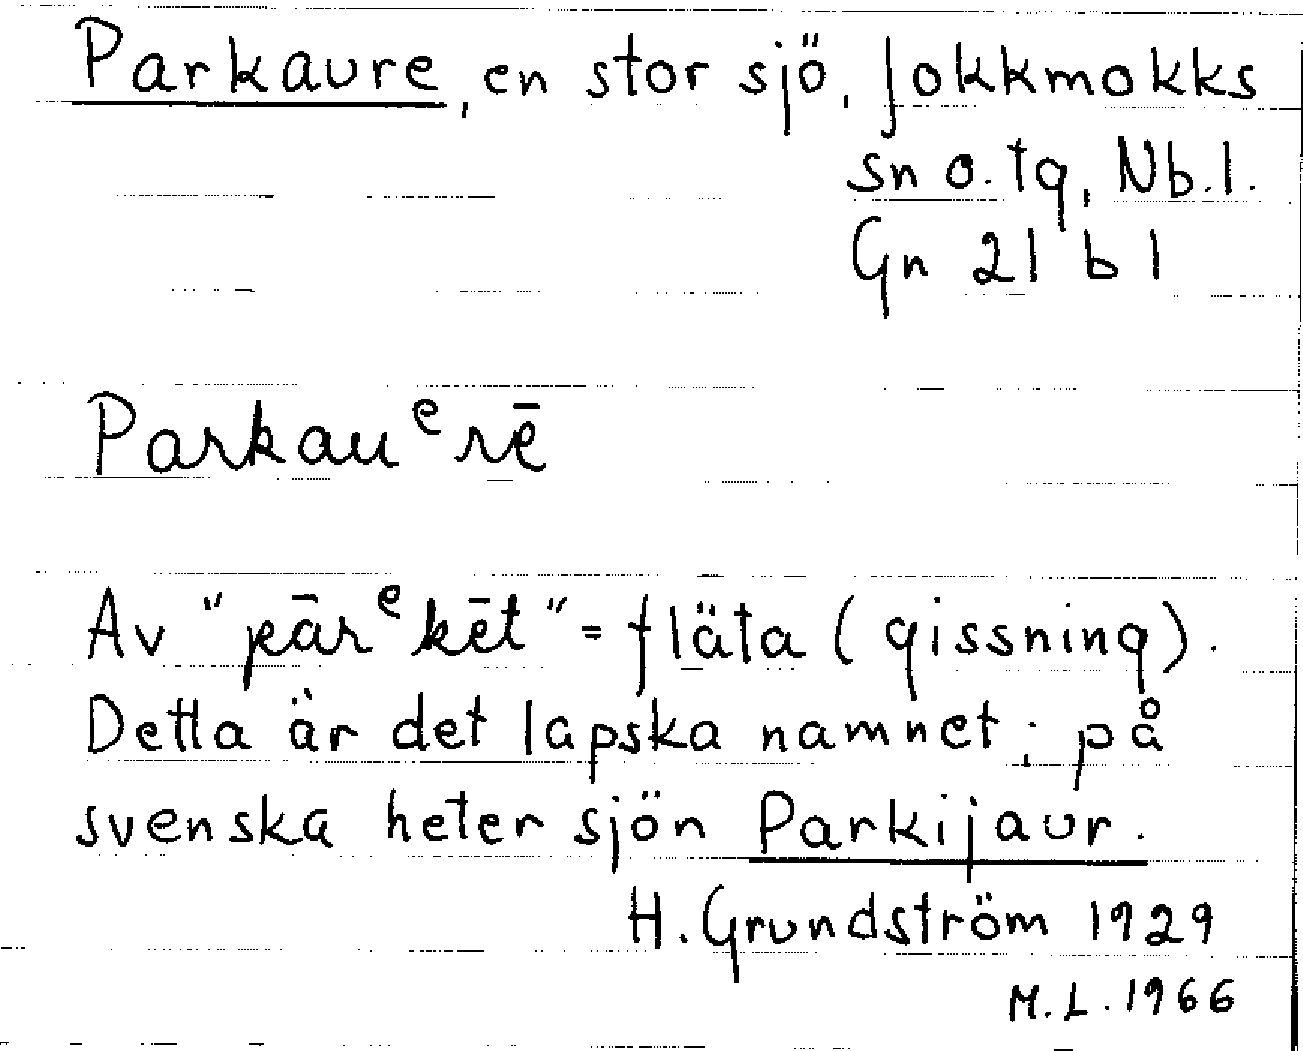 Parkaure, en stor sjö, Jokkmokks
sn o. tg, Nb. l.
Gn 21 b 1
Parkauᵉrē
Av "pārᵉkēt" = fläta (gissning).
Detta är det lapska namnet; på
svenska heter sjön Parkijaur.
H. Grundström 1929
M. L. 1966